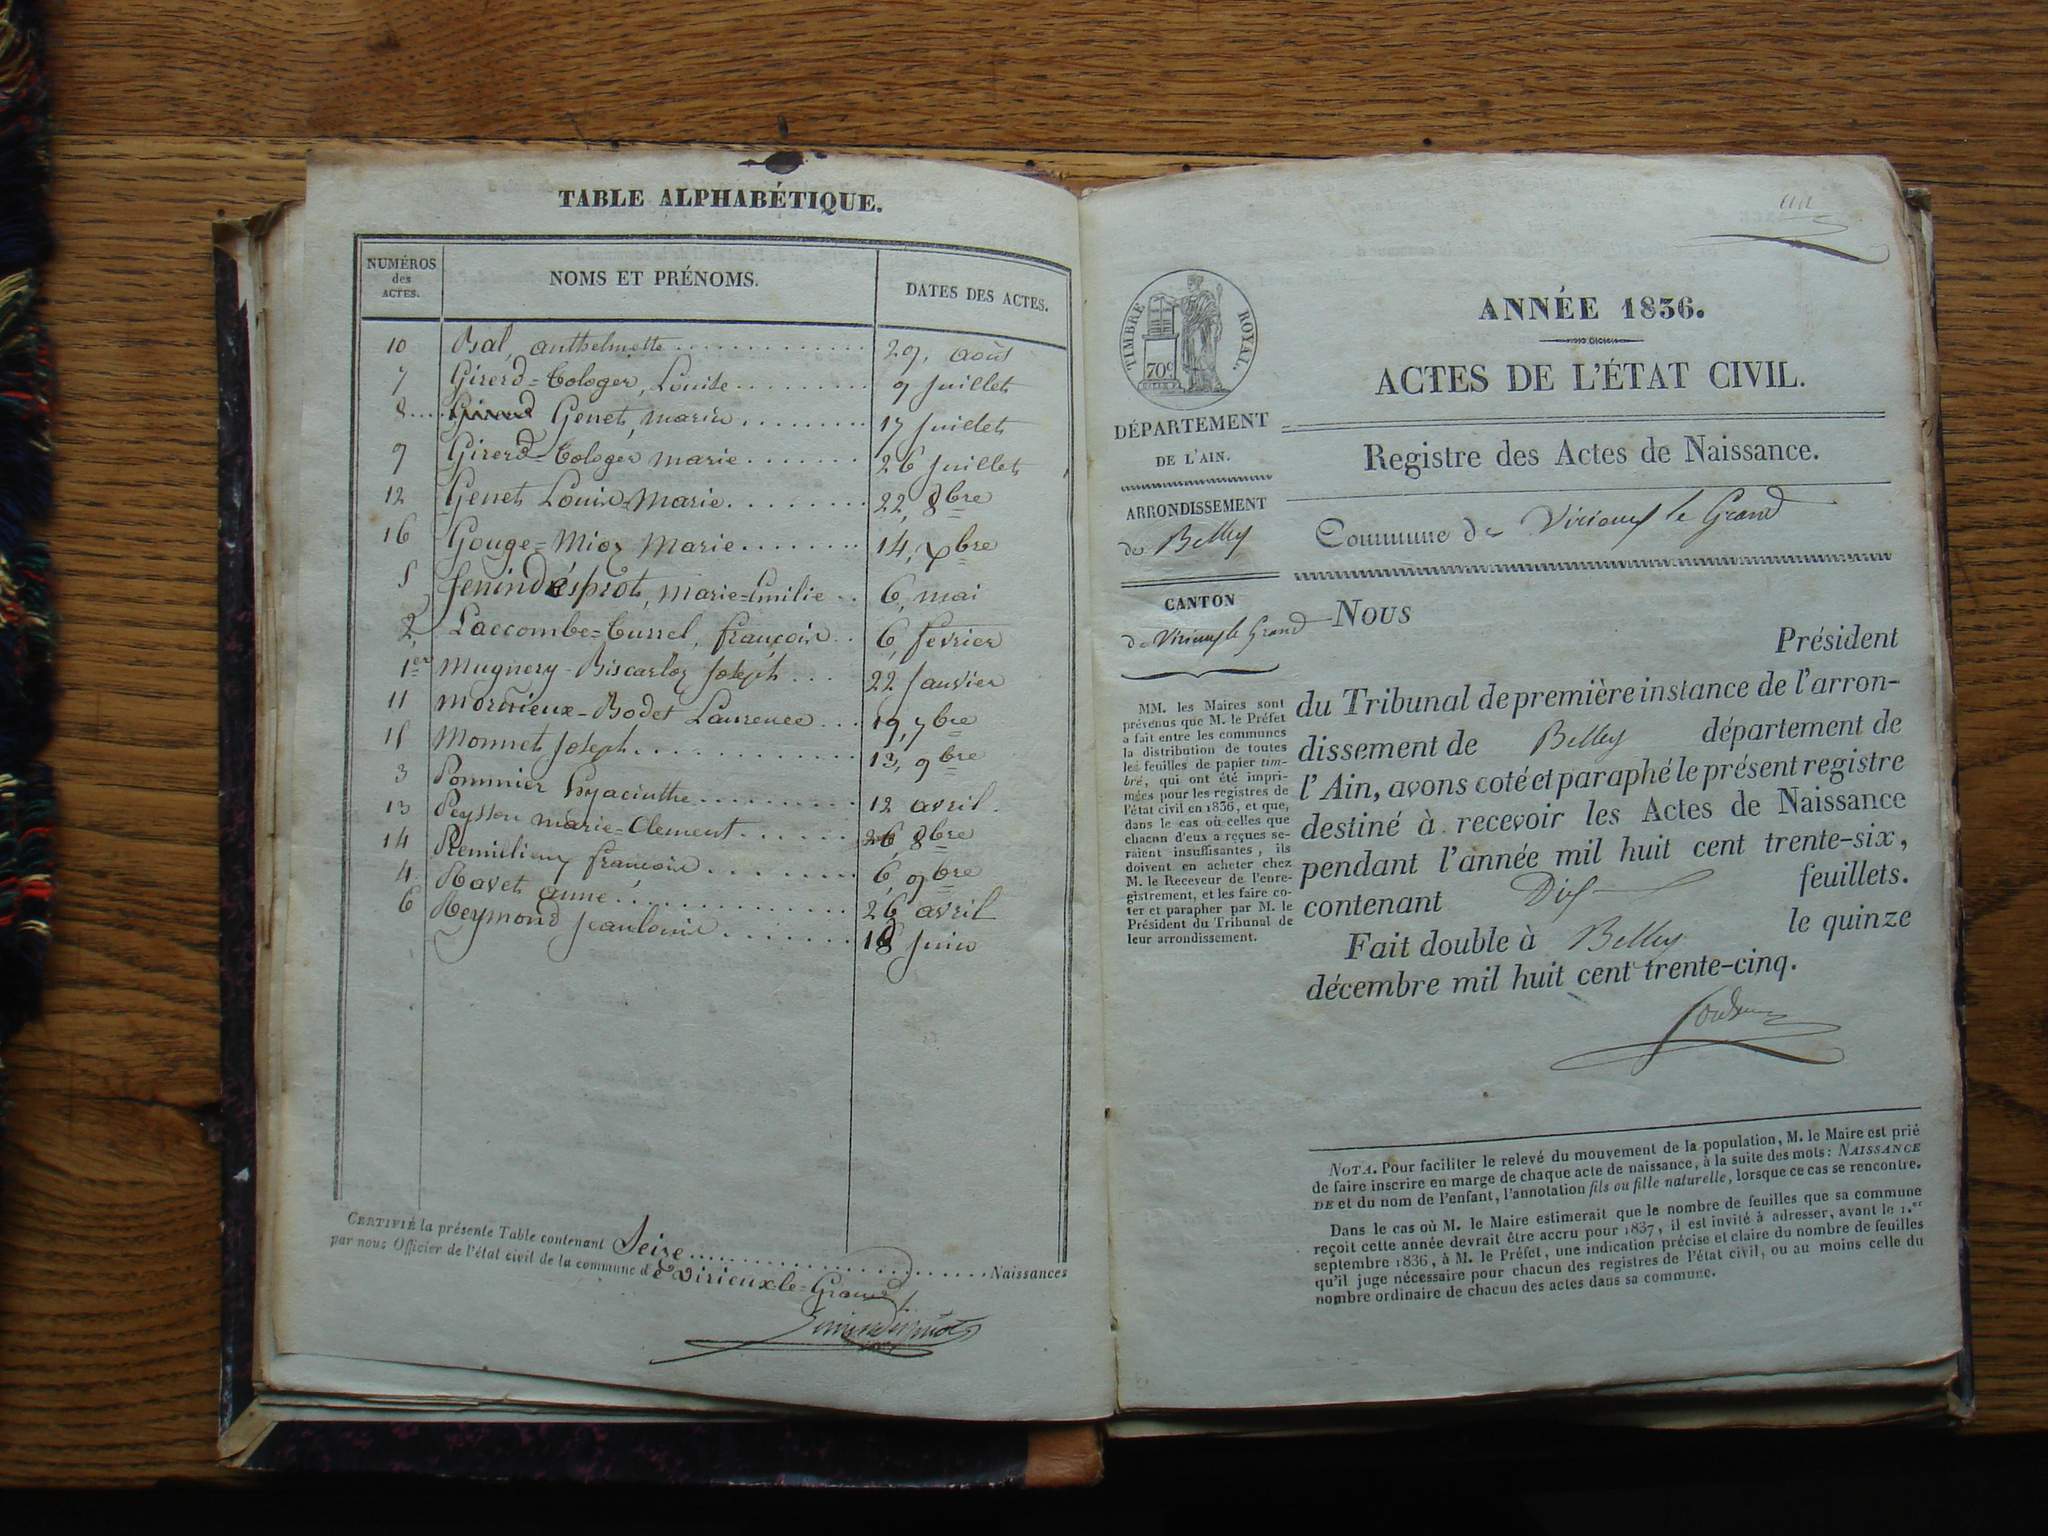 TABLE ALPHABÉTIQUE.
NUMÉROS des ACTES.
NOMS ET PRÉNOMS.
DATES DES ACTES.
10 Bal, anthelmette 29, août
7 Girerd=Cologer, Louise 9 Juillet
8 Genet, marie 17 Juillet
9 Girerd-Cologer marie 26 Juillet
12 Genet Louis-Marie 22, 8bre
16 Gouge=Mioz Marie 14, Xbre
5 Jenindésprots, marie=Emilie 6, mai
2, Laccombe=Currel, françois 6, fevrier
1er Mugnery-Biscarloz Joseph 22 Janvier
11 moririeux-Bodet Laurence 19, 7bre
15 Monnet Joseph 13, 9bre
3 Pommier hyacinthe 12 avril.
13 Peysson marie=Clement 26 8bre
14 Remillieux françois 6, 9bre
4 Ravet anne 26 avril
6 Reymond jeanlouis 18 Juin
CERTIFIÉ la présente Table contenant Seize Naissances
par nous Officier de l'état civil de la commune de Virieux-le-Grand
ANNÉE 1836.
ACTES DE L'ÉTAT CIVIL.
TIMBRE ROYAL.
70c
DÉPARTEMENT
DE L'AIN.
ARRONDISSEMENT
de Belley
CANTON
de Virieux le Grand
MM. les Maires sont
prévenus que M. le Préfet
a fait entre les communes
la distribution de toutes
les feuilles de papier tim-
bré, qui ont été impri-
mées pour les registres de
l'état civil en 1836, et que,
dans le cas où celles que
chacun d'eux a reçues se-
raient insuffisantes, ils
doivent en acheter chez
M. le Receveur de l'enre-
gistrement, et les faire co-
ter et parapher par M. le
Président du Tribunal de
leur arrondissement.
Registre des Actes de Naissance.
Commune de Virieux le Grand
NOUS
Président
du Tribunal de première instance de l'arron-
dissement de Belley département de
l'Ain, avons coté et paraphé le présent registre
destiné à recevoir les Actes de Naissance
pendant l'année mil huit cent trente-six,
contenant Dix feuillets.
Fait double à Belley le quinze
décembre mil huit cent trente-cinq.
NOTA. Pour faciliter le relevé du mouvement de la population, M. le Maire est prié
de faire inscrire en marge de chaque acte de naissance, à la suite des mots: NAISSANCE
DE et du nom de l'enfant, l'annotation fils ou fille naturelle, lorsque ce cas se rencontre.
Dans le cas où M. le Maire estimerait que le nombre de feuilles que sa commune
reçoit cette année devrait être accru pour 1837, il est invité à adresser, avant le 1.er
septembre 1836, à M. le Préfet, une indication précise et claire du nombre de feuilles
qu'il juge nécessaire pour chacun des registres de l'état civil, ou au moins celle du
nombre ordinaire de chacun des actes dans sa commune.